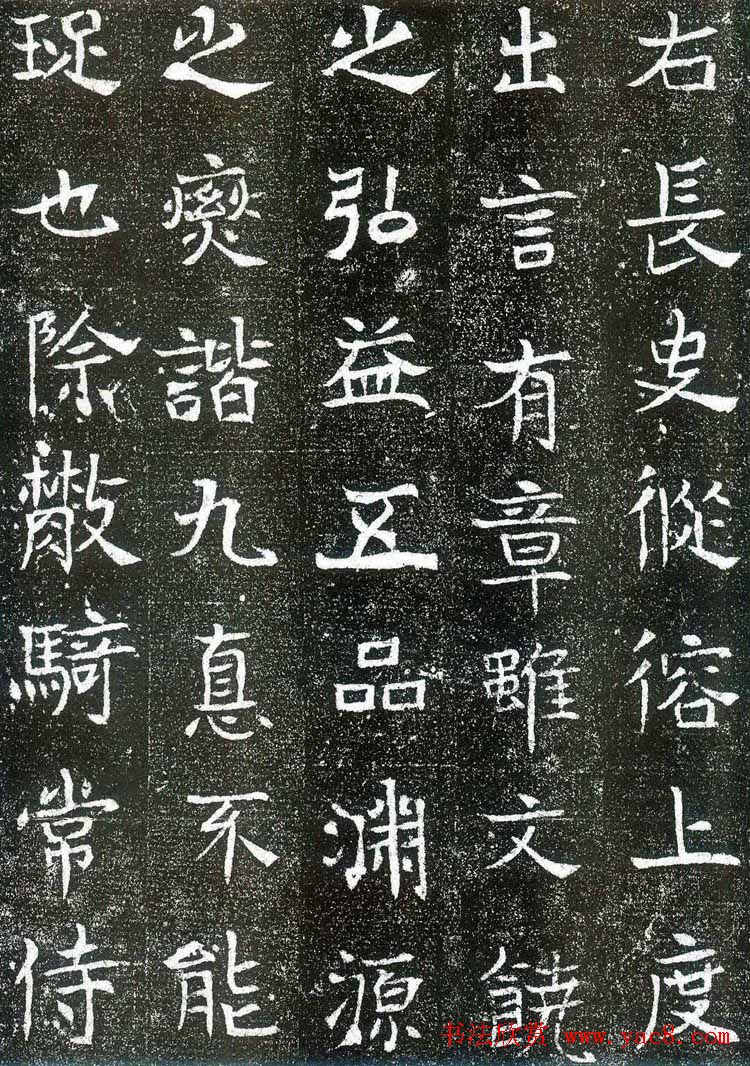 右長史從㣑上度
出言有章雖文饒
之弘益五品淵源
之爕諧九惪不能
珿也除散騎常侍
书法欣赏 www.yac8.com